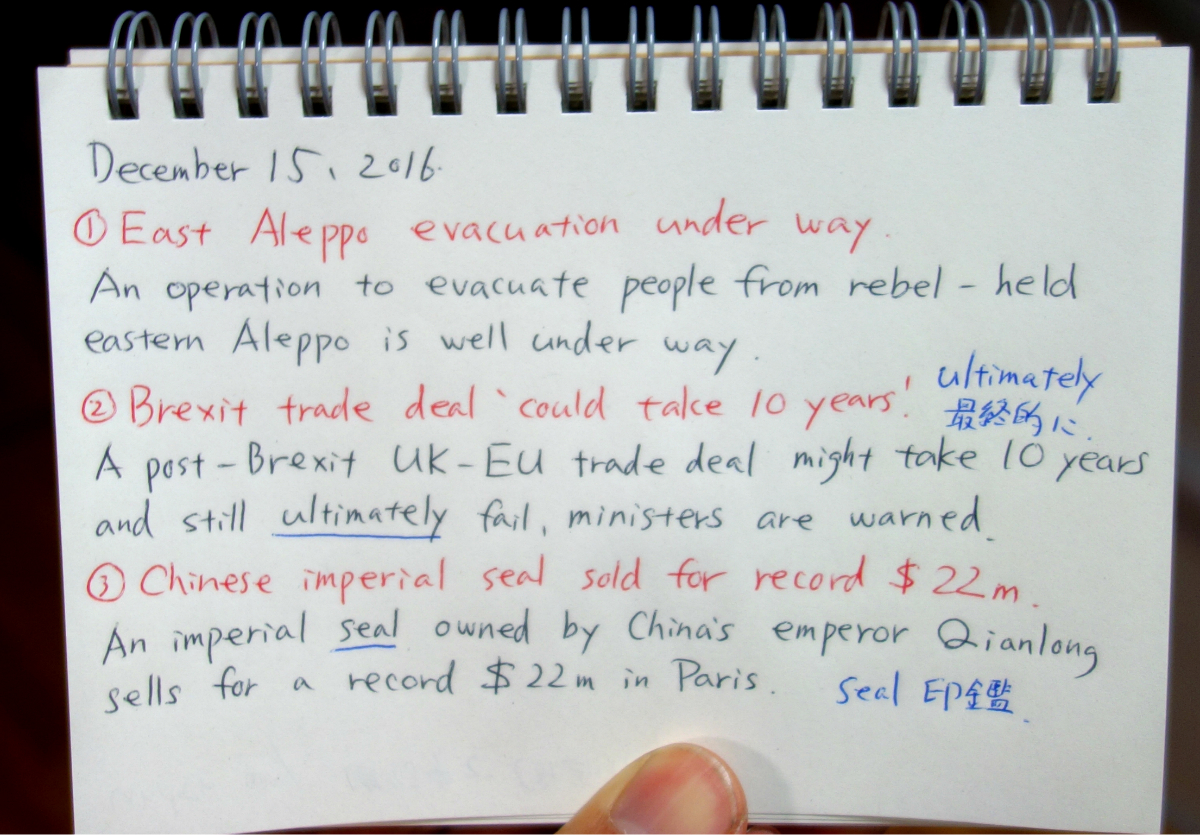 December 15, 2016.
① East Aleppo evacuation under way.
An operation to evacuate people from rebel-held
eastern Aleppo is well under way.
② Brexit trade deal 'could take 10 years'.
ultimately
最終的に.
A post-Brexit UK-EU trade deal might take 10 years
and still ultimately fail, ministers are warned.
③ Chinese imperial seal sold for record $22m.
An imperial seal owned by China's emperor Qianlong
sells for a record $22m in Paris.
seal 印鑑.